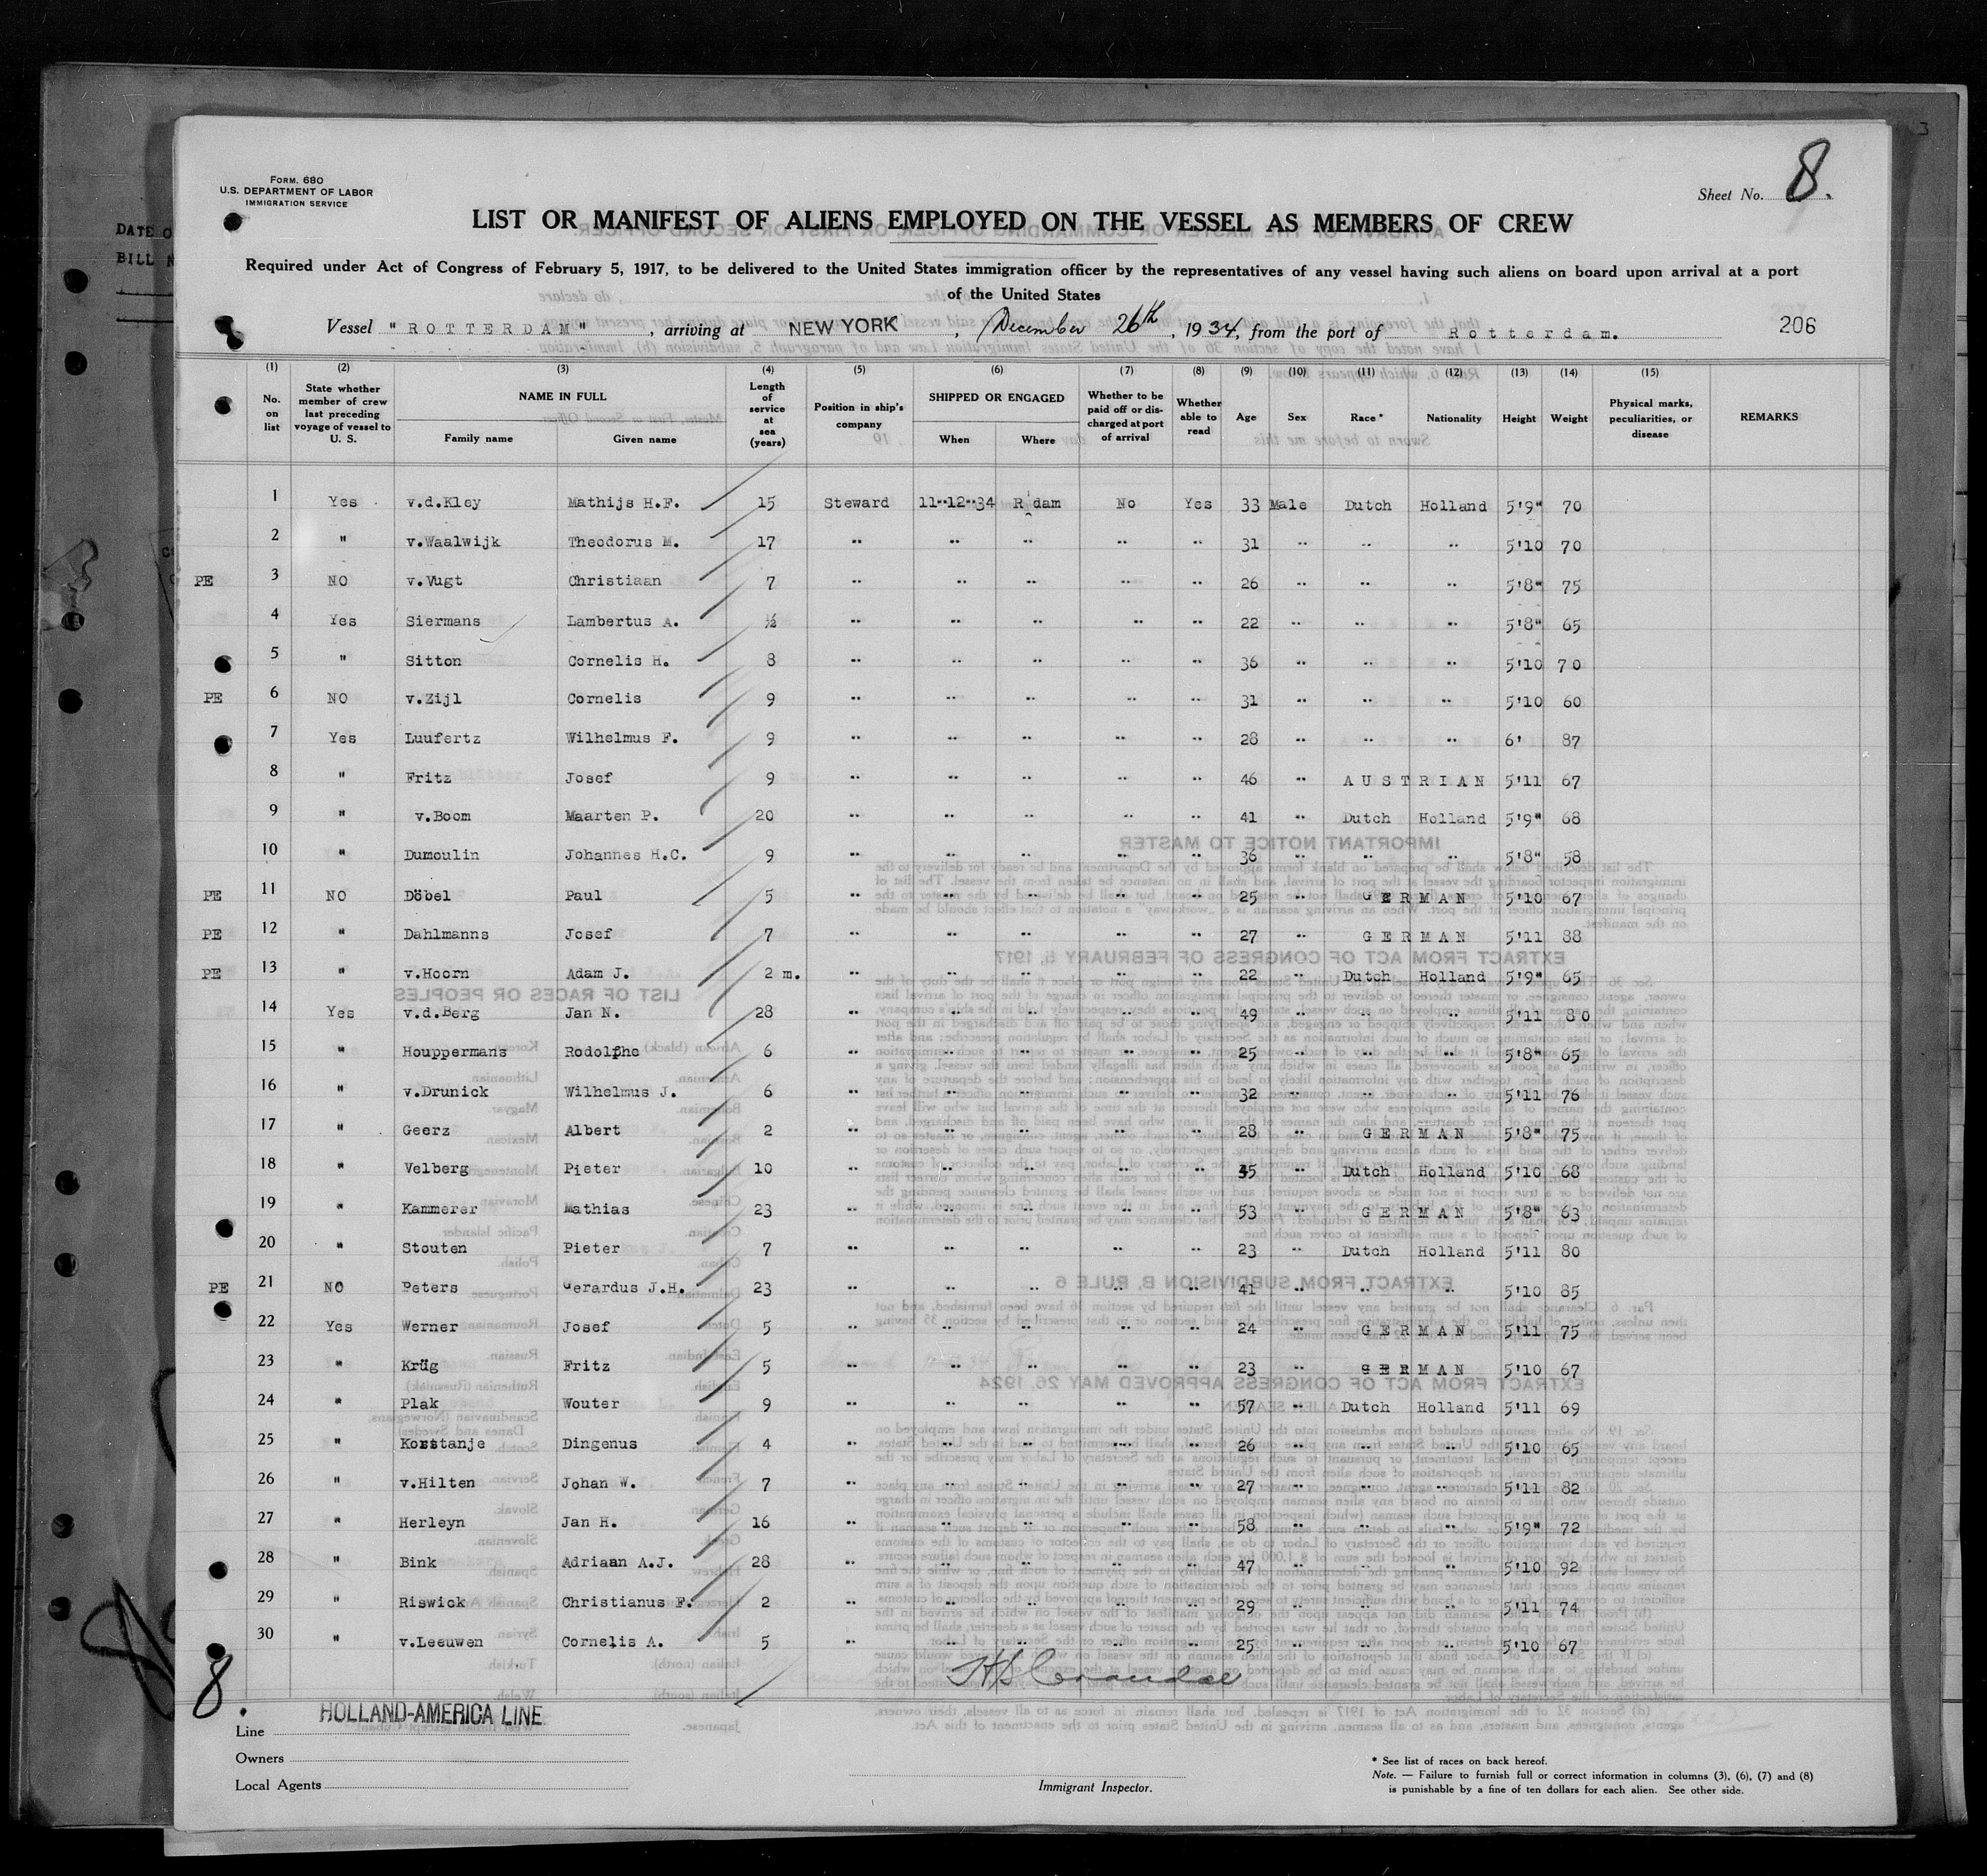 3
DATE O
BILL N
FORM. 680
U.S. DEPARTMENT OF LABOR
IMMIGRATION SERVICE
Sheet No. 8.
LIST OR MANIFEST OF ALIENS EMPLOYED ON THE VESSEL AS MEMBERS OF CREW
Required under Act of Congress of February 5, 1917, to be delivered to the United States immigration officer by the representatives of any vessel having such aliens on board upon arrival at a port
of the United States
Vessel "ROTTERDAM", arriving at NEW YORK, December 26th, 1934, from the port of Rotterdam. 206
(1) (2) (3) (4) (5) (6) (7) (8) (9) (10) (11) (12) (13) (14) (15)
No. on list State whether member of crew last preceding voyage of vessel to U. S. NAME IN FULL Family name Given name Length of service at sea (years) Position in ship's company SHIPPED OR ENGAGED When Where Whether to be paid off or discharged at port of arrival Whether able to read Age Sex Race * Nationality Height Weight Physical marks, peculiarities, or disease REMARKS
1 Yes v.d.Kley Mathijs H.F. 15 Steward 11-12-34 R'dam No Yes 33 Male Dutch Holland 5'9" 70
2 " v.Waalwijk Theodorus M. 17 " " " " " 31 " " " 5'10 70
PE 3 NO v.Vugt Christiaan 7 " " " " " 26 " " " 5'8" 75
4 Yes Siermans Lambertus A. ½ " " " " " 22 " " " 5'8" 65
5 " Sitton Cornelis H. 8 " " " " " 36 " " " 5'10 70
PE 6 NO v.Zijl Cornelis 9 " " " " " 31 " " " 5'10 60
7 Yes Luufertz Wilhelmus F. 9 " " " " " 28 " " " 6' 87
8 " Fritz Josef 9 " " " " " 46 " AUSTRIAN 5'11 67
9 " v.Boom Maarten P. 20 " " " " " 41 " Dutch Holland 5'9" 68
10 " Dumoulin Johannes H.C. 9 " " " " " 36 " " " 5'8" 58
PE 11 NO Döbel Paul 5 " " " " " 25 " GERMAN 5'10 67
PE 12 " Dahlmanns Josef 7 " " " " " 27 " GERMAN 5'11 88
PE 13 " v.Hoorn Adam J. 2 m. " " " " " 22 " Dutch Holland 5'9" 65
14 Yes v.d.Berg Jan N. 28 " " " " " 49 " " " 5'11 80
15 " Houppermans Rodolphe 6 " " " " " 25 " " " 5'8" 65
16 " v.Drunick Wilhelmus J. 6 " " " " " 32 " " " 5'11 76
17 " Geerz Albert 2 " " " " " 28 " GERMAN 5'8" 75
18 " Velberg Pieter 10 " " " " " 35 " Dutch Holland 5'10 68
19 " Kammerer Mathias 23 " " " " " 53 " GERMAN 5'8" 63
20 " Stouten Pieter 7 " " " " " 23 " Dutch Holland 5'11 80
PE 21 NO Peters Gerardus J.H. 23 " " " " " 41 " " " 5'10 85
22 Yes Werner Josef 5 " " " " " 24 " GERMAN 5'11 75
23 " Krüg Fritz 5 " " " " " 23 " GERMAN 5'10 67
24 " Plak Wouter 9 " " " " " 57 " Dutch Holland 5'11 69
25 " Korstanje Dingenus 4 " " " " " 26 " " " 5'10 65
26 " v.Hilten Johan W. 7 " " " " " 27 " " " 5'11 82
27 " Herleyn Jan H. 16 " " " " " 58 " " " 5'9" 72
28 " Bink Adriaan A.J. 28 " " " " " 47 " " " 5'10 92
29 " Riswick Christianus F. 2 " " " " " 29 " " " 5'11 74
30 " v.Leeuwen Cornelis A. 5 " " " " " 25 " " " 5'10 67
8.
Line HOLLAND-AMERICA LINE
Owners
Local Agents
Immigrant Inspector.
* See list of races on back hereof.
Note. — Failure to furnish full or correct information in columns (3), (6), (7) and (8)
is punishable by a fine of ten dollars for each alien. See other side.